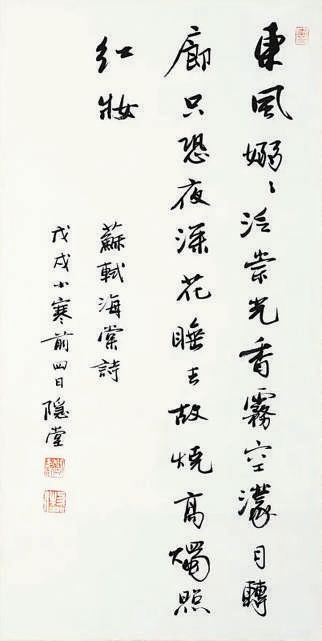 東風嫋〻泛崇光香霧空濛月轉
廊只恐夜深花睡去故燒高燭照
红妝
蘇軾海棠詩
戊戌小寒前四日隐堂